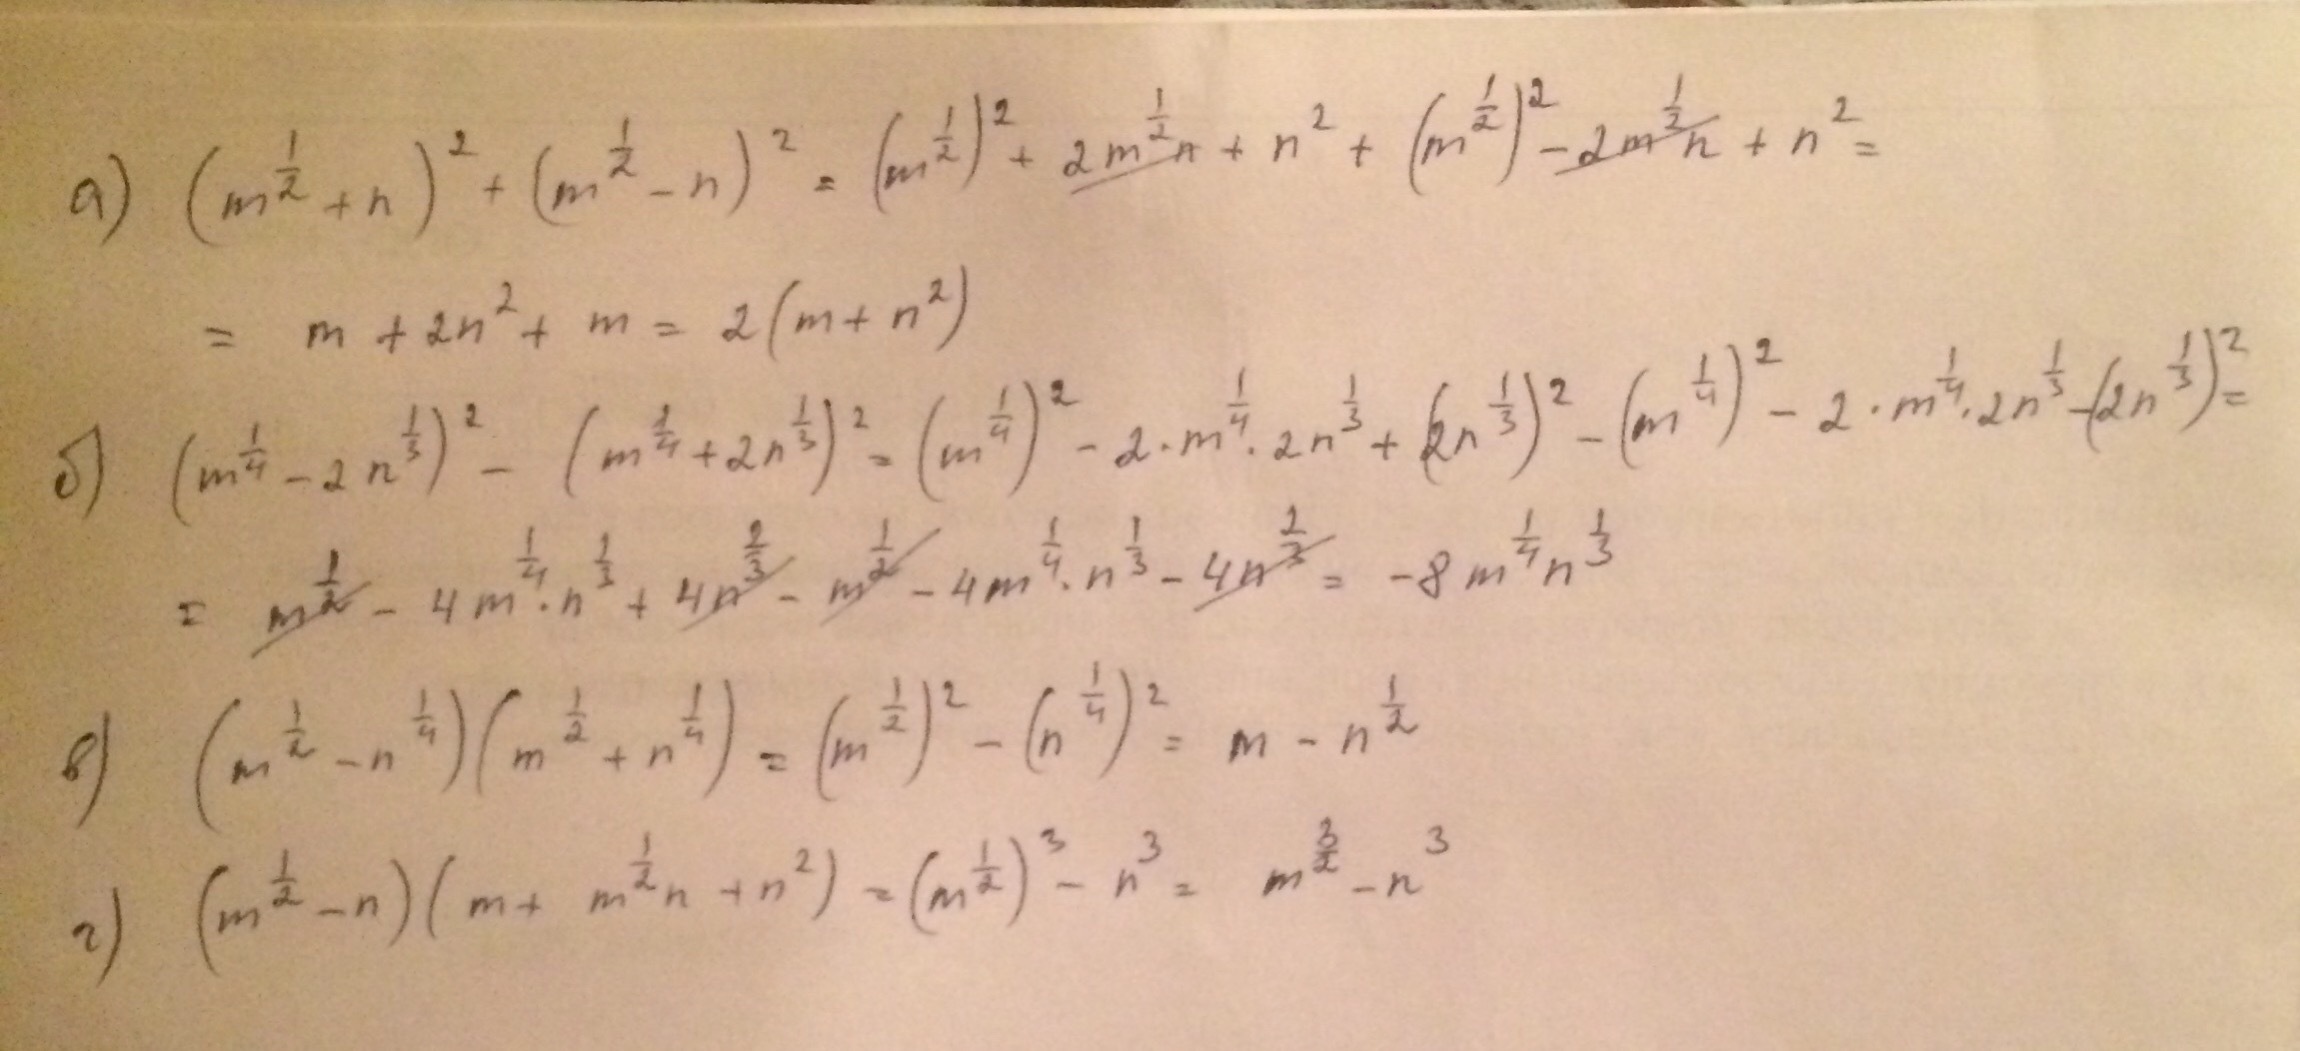 а) (m^{1/2} + n)^2 + (m^{1/2} - n)^2 = (m^{1/2})^2 + 2m^{1/2}n + n^2 + (m^{1/2})^2 - 2m^{1/2}n + n^2 =
= m + 2n^2 + m = 2(m + n^2)
б) (m^{1/4} - 2n^{1/3})^2 - (m^{1/4} + 2n^{1/3})^2 = (m^{1/4})^2 - 2·m^{1/4}·2n^{1/3} + (2n^{1/3})^2 - (m^{1/4})^2 - 2·m^{1/4}·2n^{1/3} - (2n^{1/3})^2 =
= m^{1/2} - 4m^{1/4}·n^{1/3} + 4n^{2/3} - m^{1/2} - 4m^{1/4}·n^{1/3} - 4n^{2/3} = -8m^{1/4}n^{1/3}
в) (m^{1/2} - n^{1/4})(m^{1/2} + n^{1/4}) = (m^{1/2})^2 - (n^{1/4})^2 = m - n^{1/2}
г) (m^{1/2} - n)(m + m^{1/2}n + n^2) = (m^{1/2})^3 - n^3 = m^{3/2} - n^3